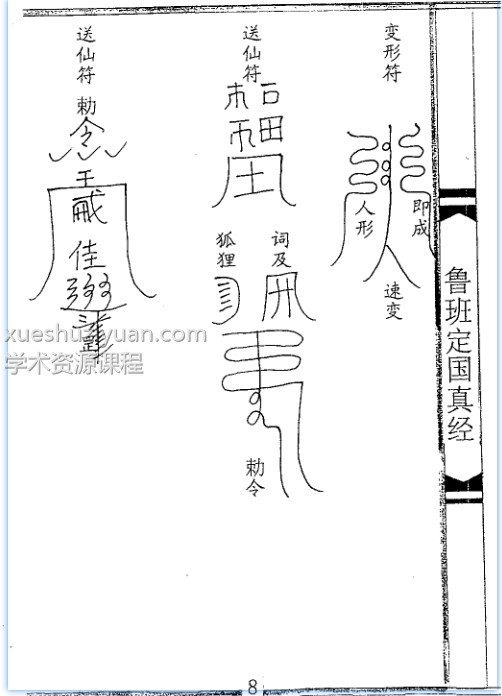 鲁班定国真经
变形符
即成
人形
速变
送仙符
词及
狐狸
勅令
送仙符
勅
令
王
佳
xueshuziyuan.com
学术资源课程
8